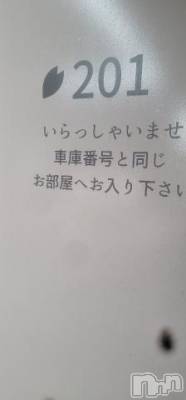 201
いらっしゃいませ
車庫番号と同じ
お部屋へお入り下さい